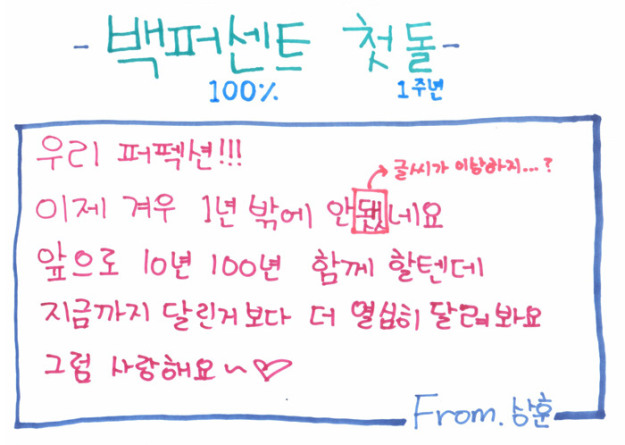 - 백퍼센트 첫돌 -
100% 1주년
우리 퍼펙션!!!
글씨가 이상하지...?
이제 겨우 1년 밖에 안됐네요
앞으로 10년 100년 함께 할텐데
지금까지 달린거보다 더 열심히 달려봐요
그럼 사랑해요~♡
From. 상훈